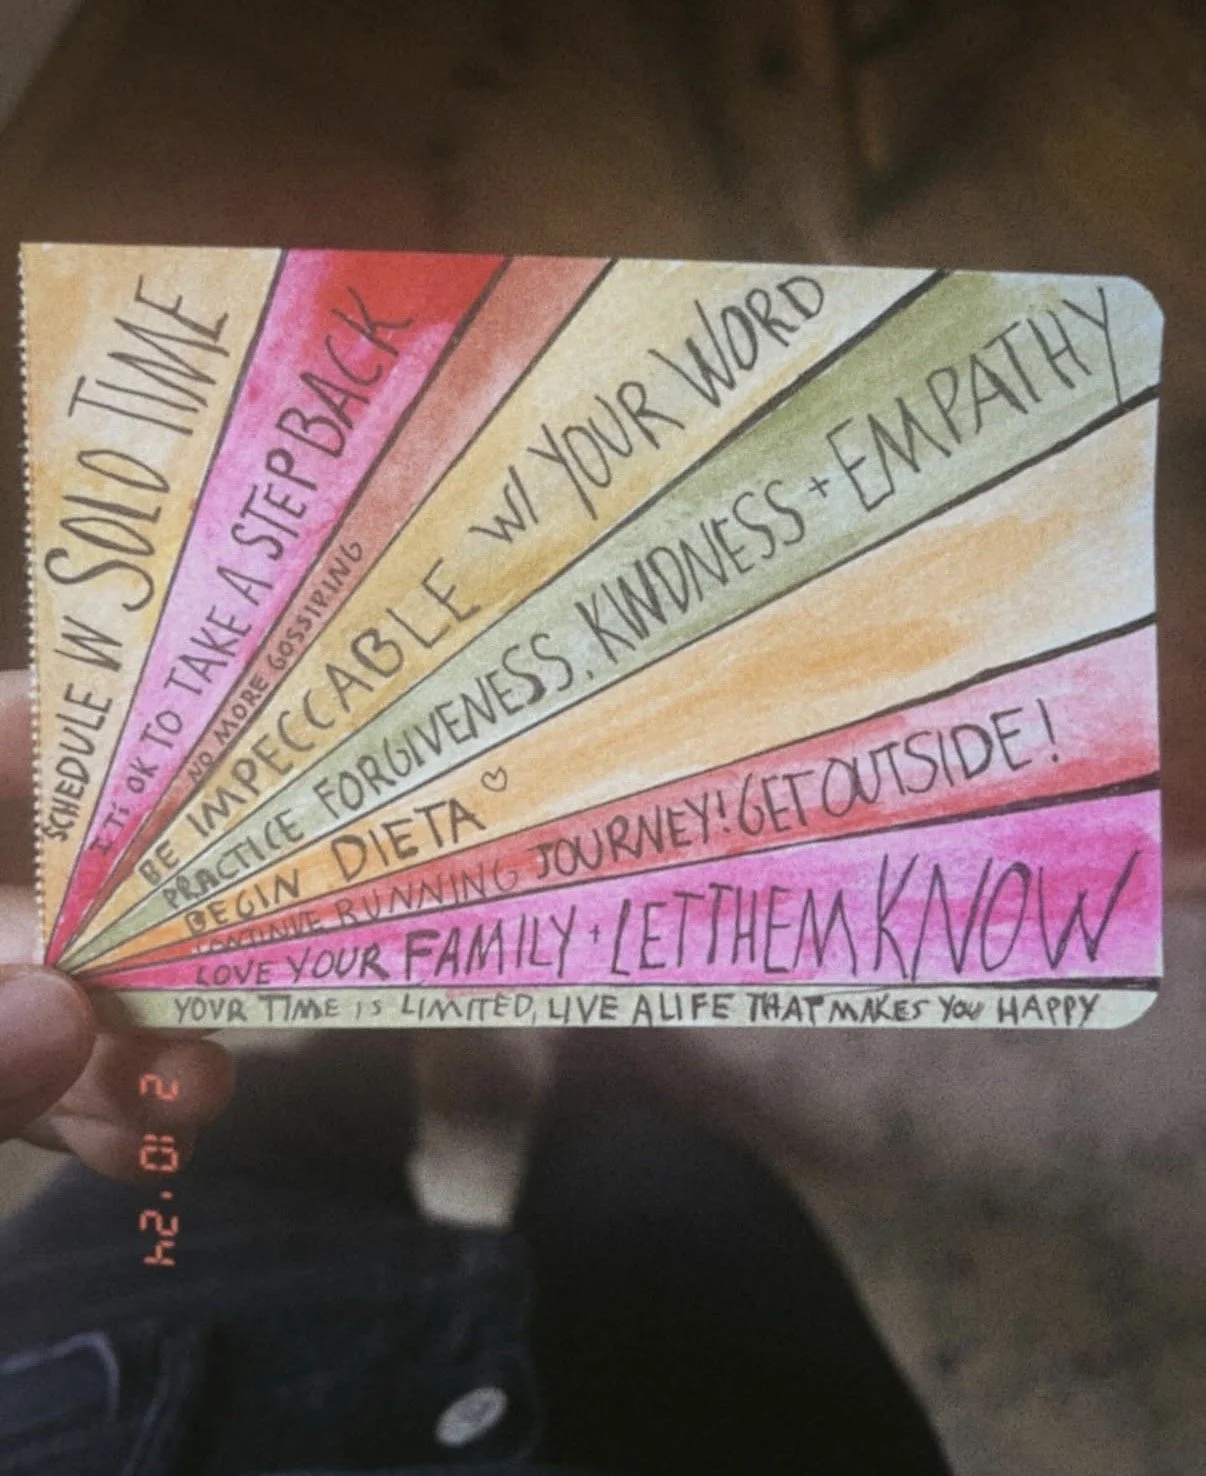 SCHEDULE IN SOLO TIME
ITS OK TO TAKE A STEP BACK
NO MORE GOSSIPING
BE IMPECCABLE W/ YOUR WORD
PRACTICE FORGIVENESS, KINDNESS + EMPATHY
BEGIN DIETA ♡
CONTINUE RUNNING JOURNEY! GET OUTSIDE!
LOVE YOUR FAMILY + LET THEM KNOW
YOUR TIME IS LIMITED, LIVE A LIFE THAT MAKES YOU HAPPY
2 10 '24